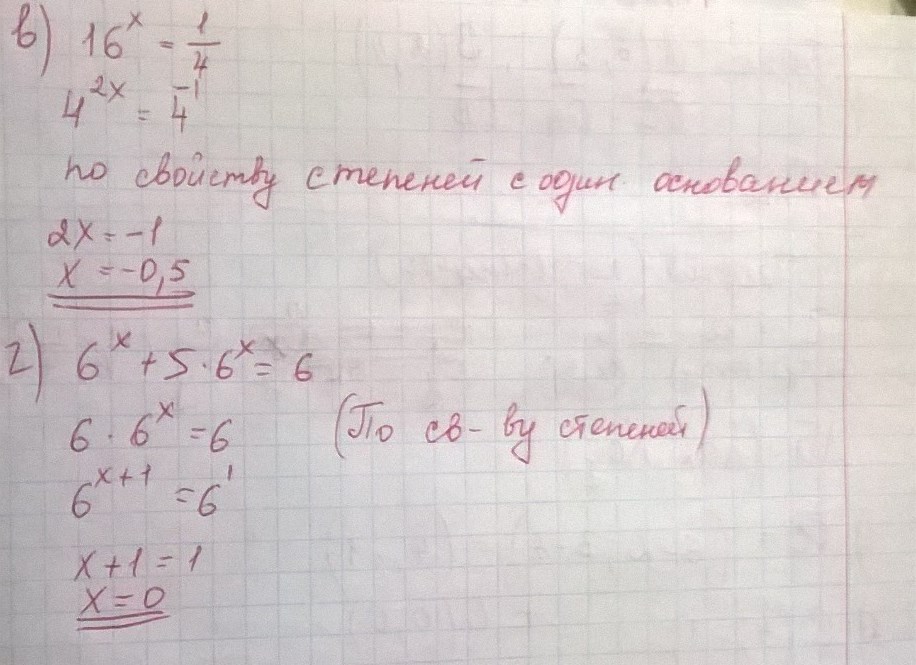 в) 16^x = 1/4
4^2x = 4^-1
по свойству степеней с один. основанием
2x = -1
x = -0,5
г) 6^x + 5 · 6^x = 6
6 · 6^x = 6 (По св-ву степеней)
6^x+1 = 6^1
x + 1 = 1
x = 0